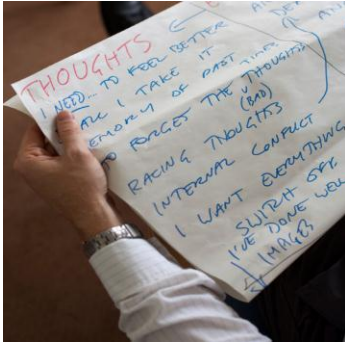 THOUGHTS
I NEED... TO FEEL BETTER
ALL I TAKE IT
MEMORY OF PAST TIMES
TO FORGET THE THOUGHTS
(BAD)
RACING THOUGHTS
INTERNAL CONFLICT
I WANT EVERYTHING
SWITCH OFF
I'VE DONE WELL
IMAGES